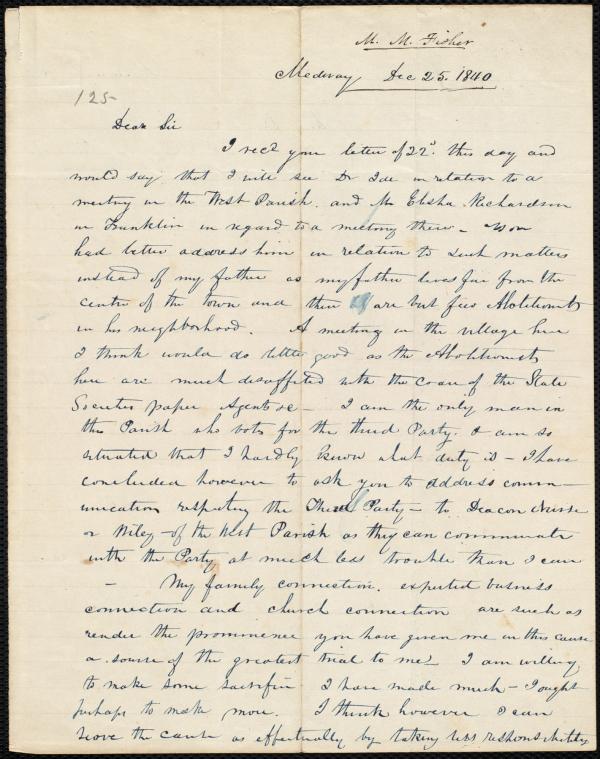 M. M. Fisher
Medway Dec 25. 1840
125
Dear Sir
I recd your letter of 22d. this day and
would say that I will see Dr Ide in relation to a
meeting in the West Parish. and Mr Elisha Richardson
in Franklin in regard to a meeting there - You
had better address him in relation to such matters
instead of my father as my father lives far from the
centre of the town and there are but few Abolitionists
in his neighborhood. A meeting in the village here
I think would do little good as the Abolitionists
here are much disaffected with the course of the State
Societies paper Agents &c - I am the only man in
this Parish who vots for the third Party. & am so
situated that I hardly know what duty is - I have
concluded however to ask you to address comm-
unication respecting the Third Party - to Deacon Nurse
or Wiley - of the West Parish as they can communicate
with the Party at much less trouble than I can
- My family connection. expected business
connection and church connection are such as
render the prominence you have given me in this cause
a source of the greatest trial to me I am willing
to make some sacrifice I have made much - I ought
perhaps to make more. I think however I can
serve the cause as effectually by taking less responsibility